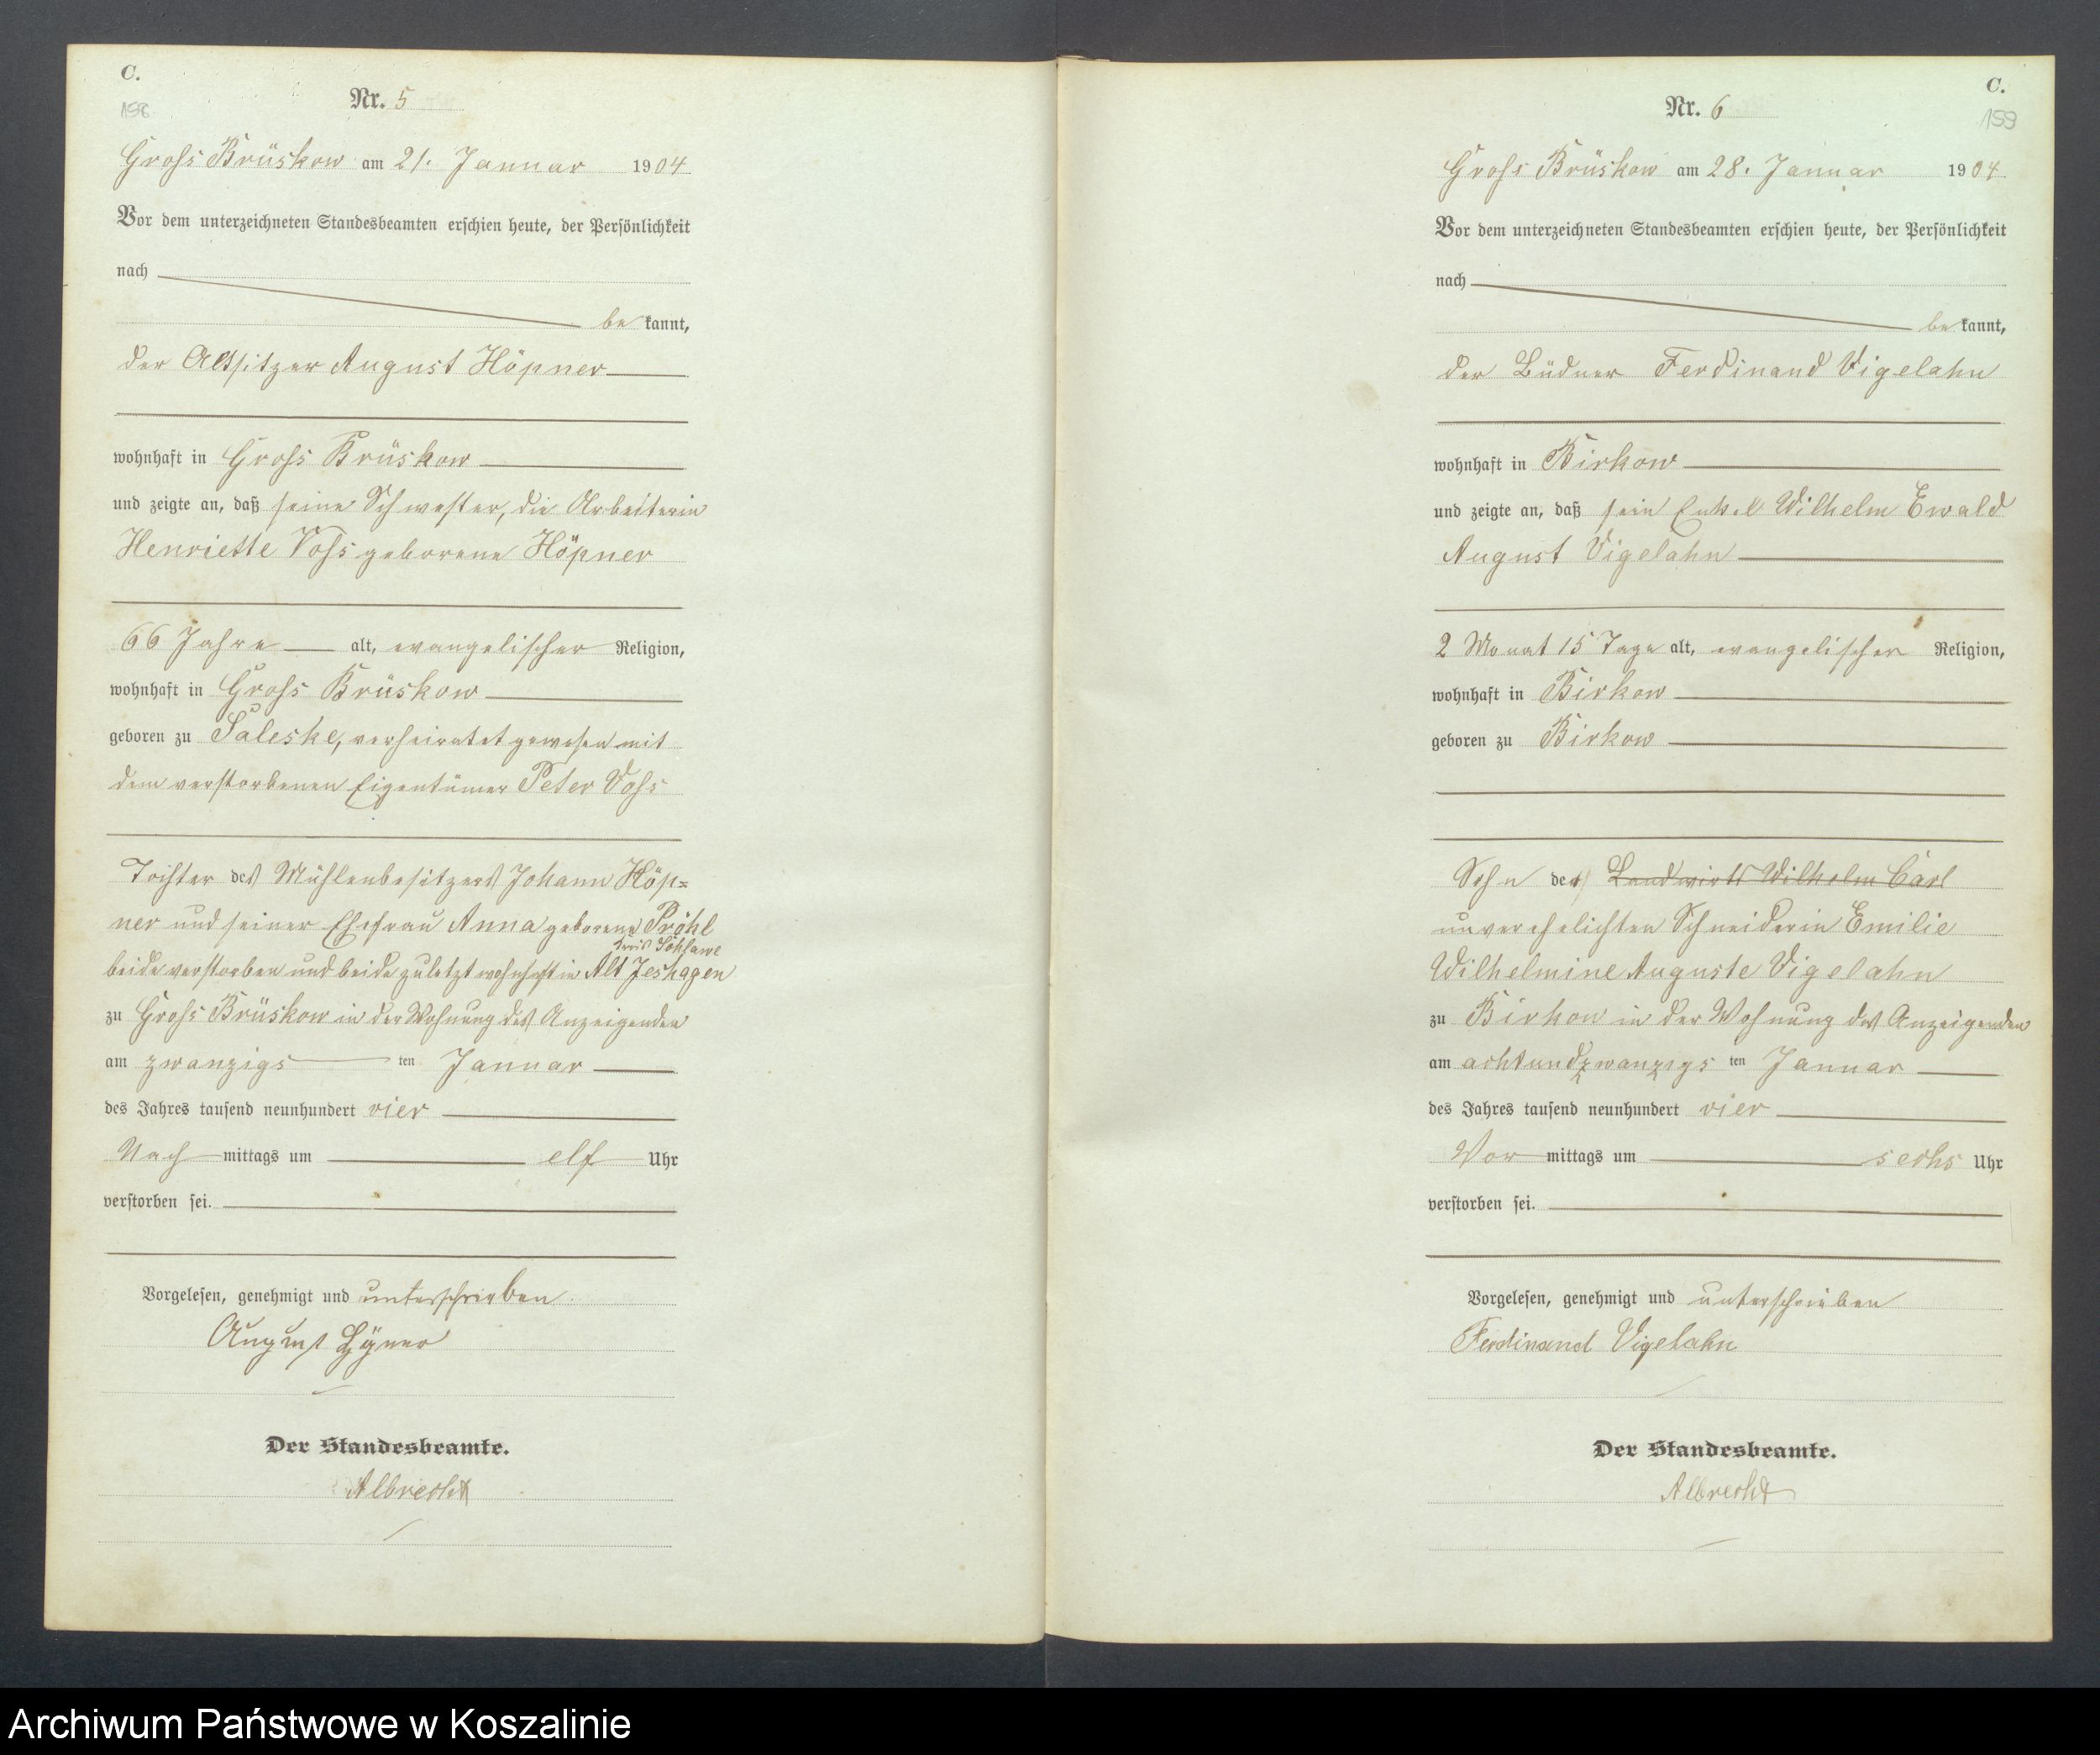 C.
158
Nr. 5
Gross Brüskow am 21. Januar 1904
Vor dem unterzeichneten Standesbeamten erschien heute, der Persönlichkeit
nach
be kannt,
der Altsitzer August Höpner
wohnhaft in Gross Brüskow
und zeigte an, daß seine Schwester, die Arbeiterin
Henriette Voss geborene Höpner
66 Jahre alt, evangelischer Religion,
wohnhaft in Gross Brüskow
geboren zu Saleske, verheiratet gewesen mit
dem verstorbenen Eigentümer Peter Voss
Tochter des Mühlenbesitzers Johann Höp=
ner und seiner Ehefrau Anna geborene Pröhl
Kreis Schlawe
beide verstorben und beide zuletzt wohnhaft in Alt Jeshagen
zu Gross Brüskow in der Wohnung des Anzeigenden
am zwanzigs ten Januar
des Jahres tausend neunhundert vier
Nach mittags um elf Uhr
verstorben sei.
Vorgelesen, genehmigt und unterschrieben
August
Der Standesbeamte.
Albrecht
C.
159
Nr. 6
Gross Brüskow am 28. Januar 1904
Vor dem unterzeichneten Standesbeamten erschien heute, der Persönlichkeit
nach
be kannt,
der Büdner Ferdinand Vigelahn
wohnhaft in Birkow
und zeigte an, daß sein Enkel Wilhelm Ewald
August Vigelahn
2 Monat 15 Tage alt, evangelischer Religion,
wohnhaft in Birkow
geboren zu Birkow
Sohn der Landwirts Wilhelm Carl
unverehelichten Schneiderin Emilie
Wilhelmine Auguste Vigelahn
zu Birkow in der Wohnung des Anzeigenden
am achtundzwanzigs ten Januar
des Jahres tausend neunhundert vier
Vor mittags um sechs Uhr
verstorben sei.
Vorgelesen, genehmigt und unterschrieben
Ferdinand Vigelahn
Der Standesbeamte.
Albrecht
Archiwum Państwowe w Koszalinie